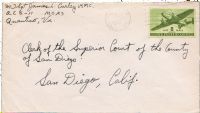 M.Sgt James L. Curley USMC.
Quantico, Va.
Clerk of the Superior Court of the County
of San Diego:
San Diego, Calif.